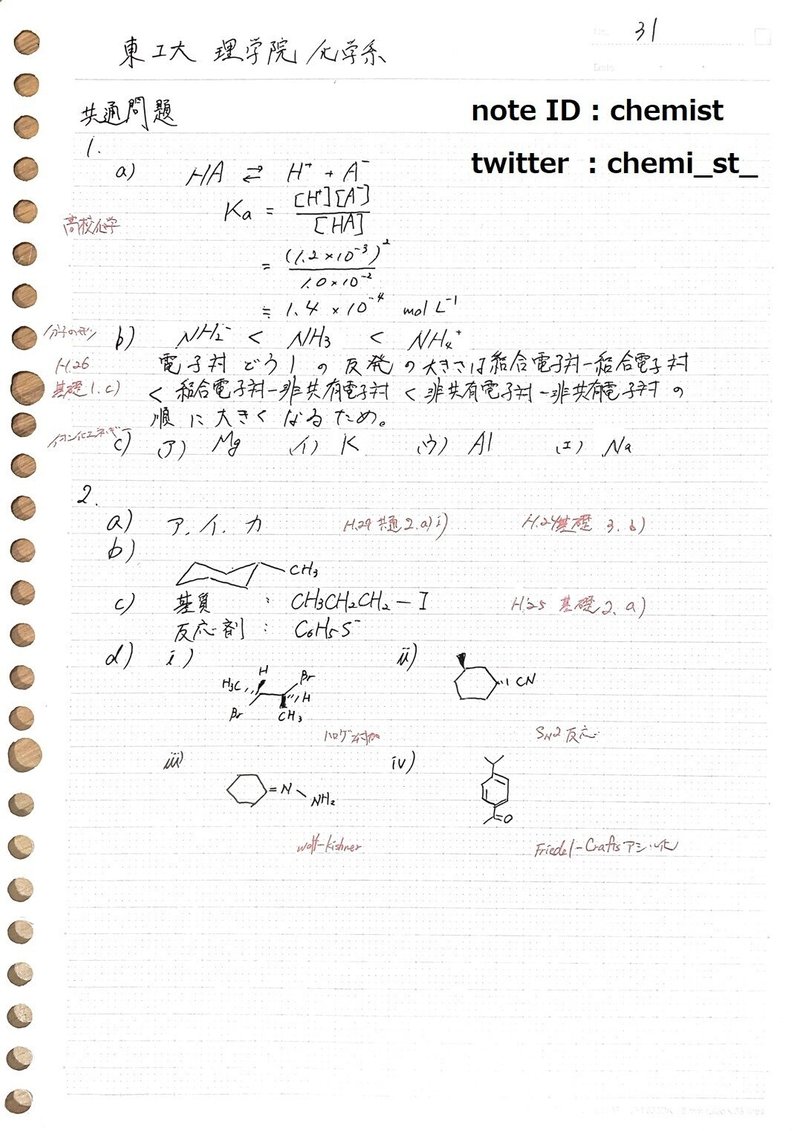 31
東工大 理学院 化学系
note ID : chemist
twitter : chemi_st_
共通問題
1.
a) HA ⇄ H⁺ + A⁻
高校化学
Ka = [H⁺][A⁻] / [HA]
= (1.2×10⁻³)² / 1.0×10⁻²
≒ 1.4 × 10⁻⁴ mol L⁻¹
b) NH₂⁻ < NH₃ < NH₄⁺
H.26
基礎1.c)
電子対どうしの反発の大きさは結合電子対-結合電子対
< 結合電子対-非共有電子対 < 非共有電子対-非共有電子対の
順に大きくなるため。
イオン化エネルギー
c) (ア) Mg (イ) K (ウ) Al (エ) Na
2.
a) ア、イ、カ H.29 共通2.a)i) H.24基礎 3.b)
b)
CH₃
c) 基質 : CH3CH2CH2-I H.25 基礎2.a)
反応剤 : C6H5S⁻
d) i) ii)
H
H₃C Br
Br H
CH₃
CN
ハロゲン付加 SN2反応
iii) iv)
=N
NH₂
O
wolf-kishner Friedel-Craftsアシル化